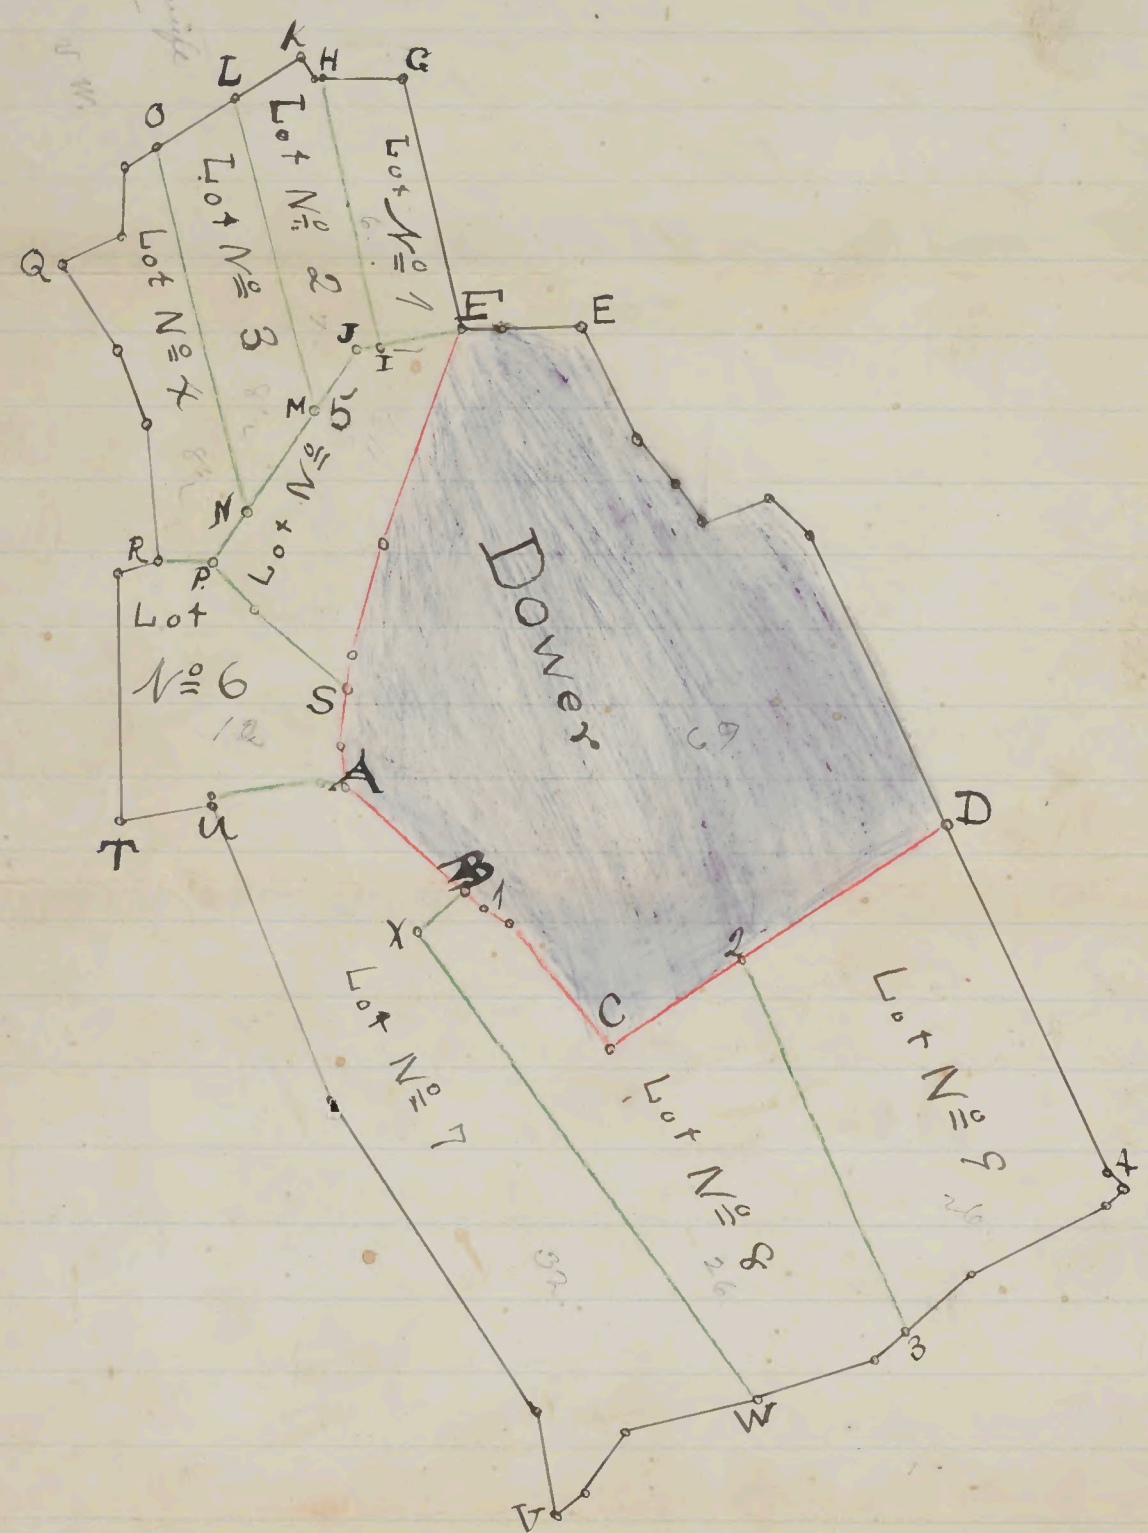 K
H
G
L
O
Lot Nº 1
Lot Nº 2
Lot Nº 3
Lot Nº 4
Q
E
E
J
H
M
Lot Nº 5
N
R
P
Lot
Nº 6
12
S
Dower
69
A
T
U
D
B
1
X
2
C
Lot Nº 7
32
Lot Nº 8
26
Lot Nº 9
26
4
3
W
V